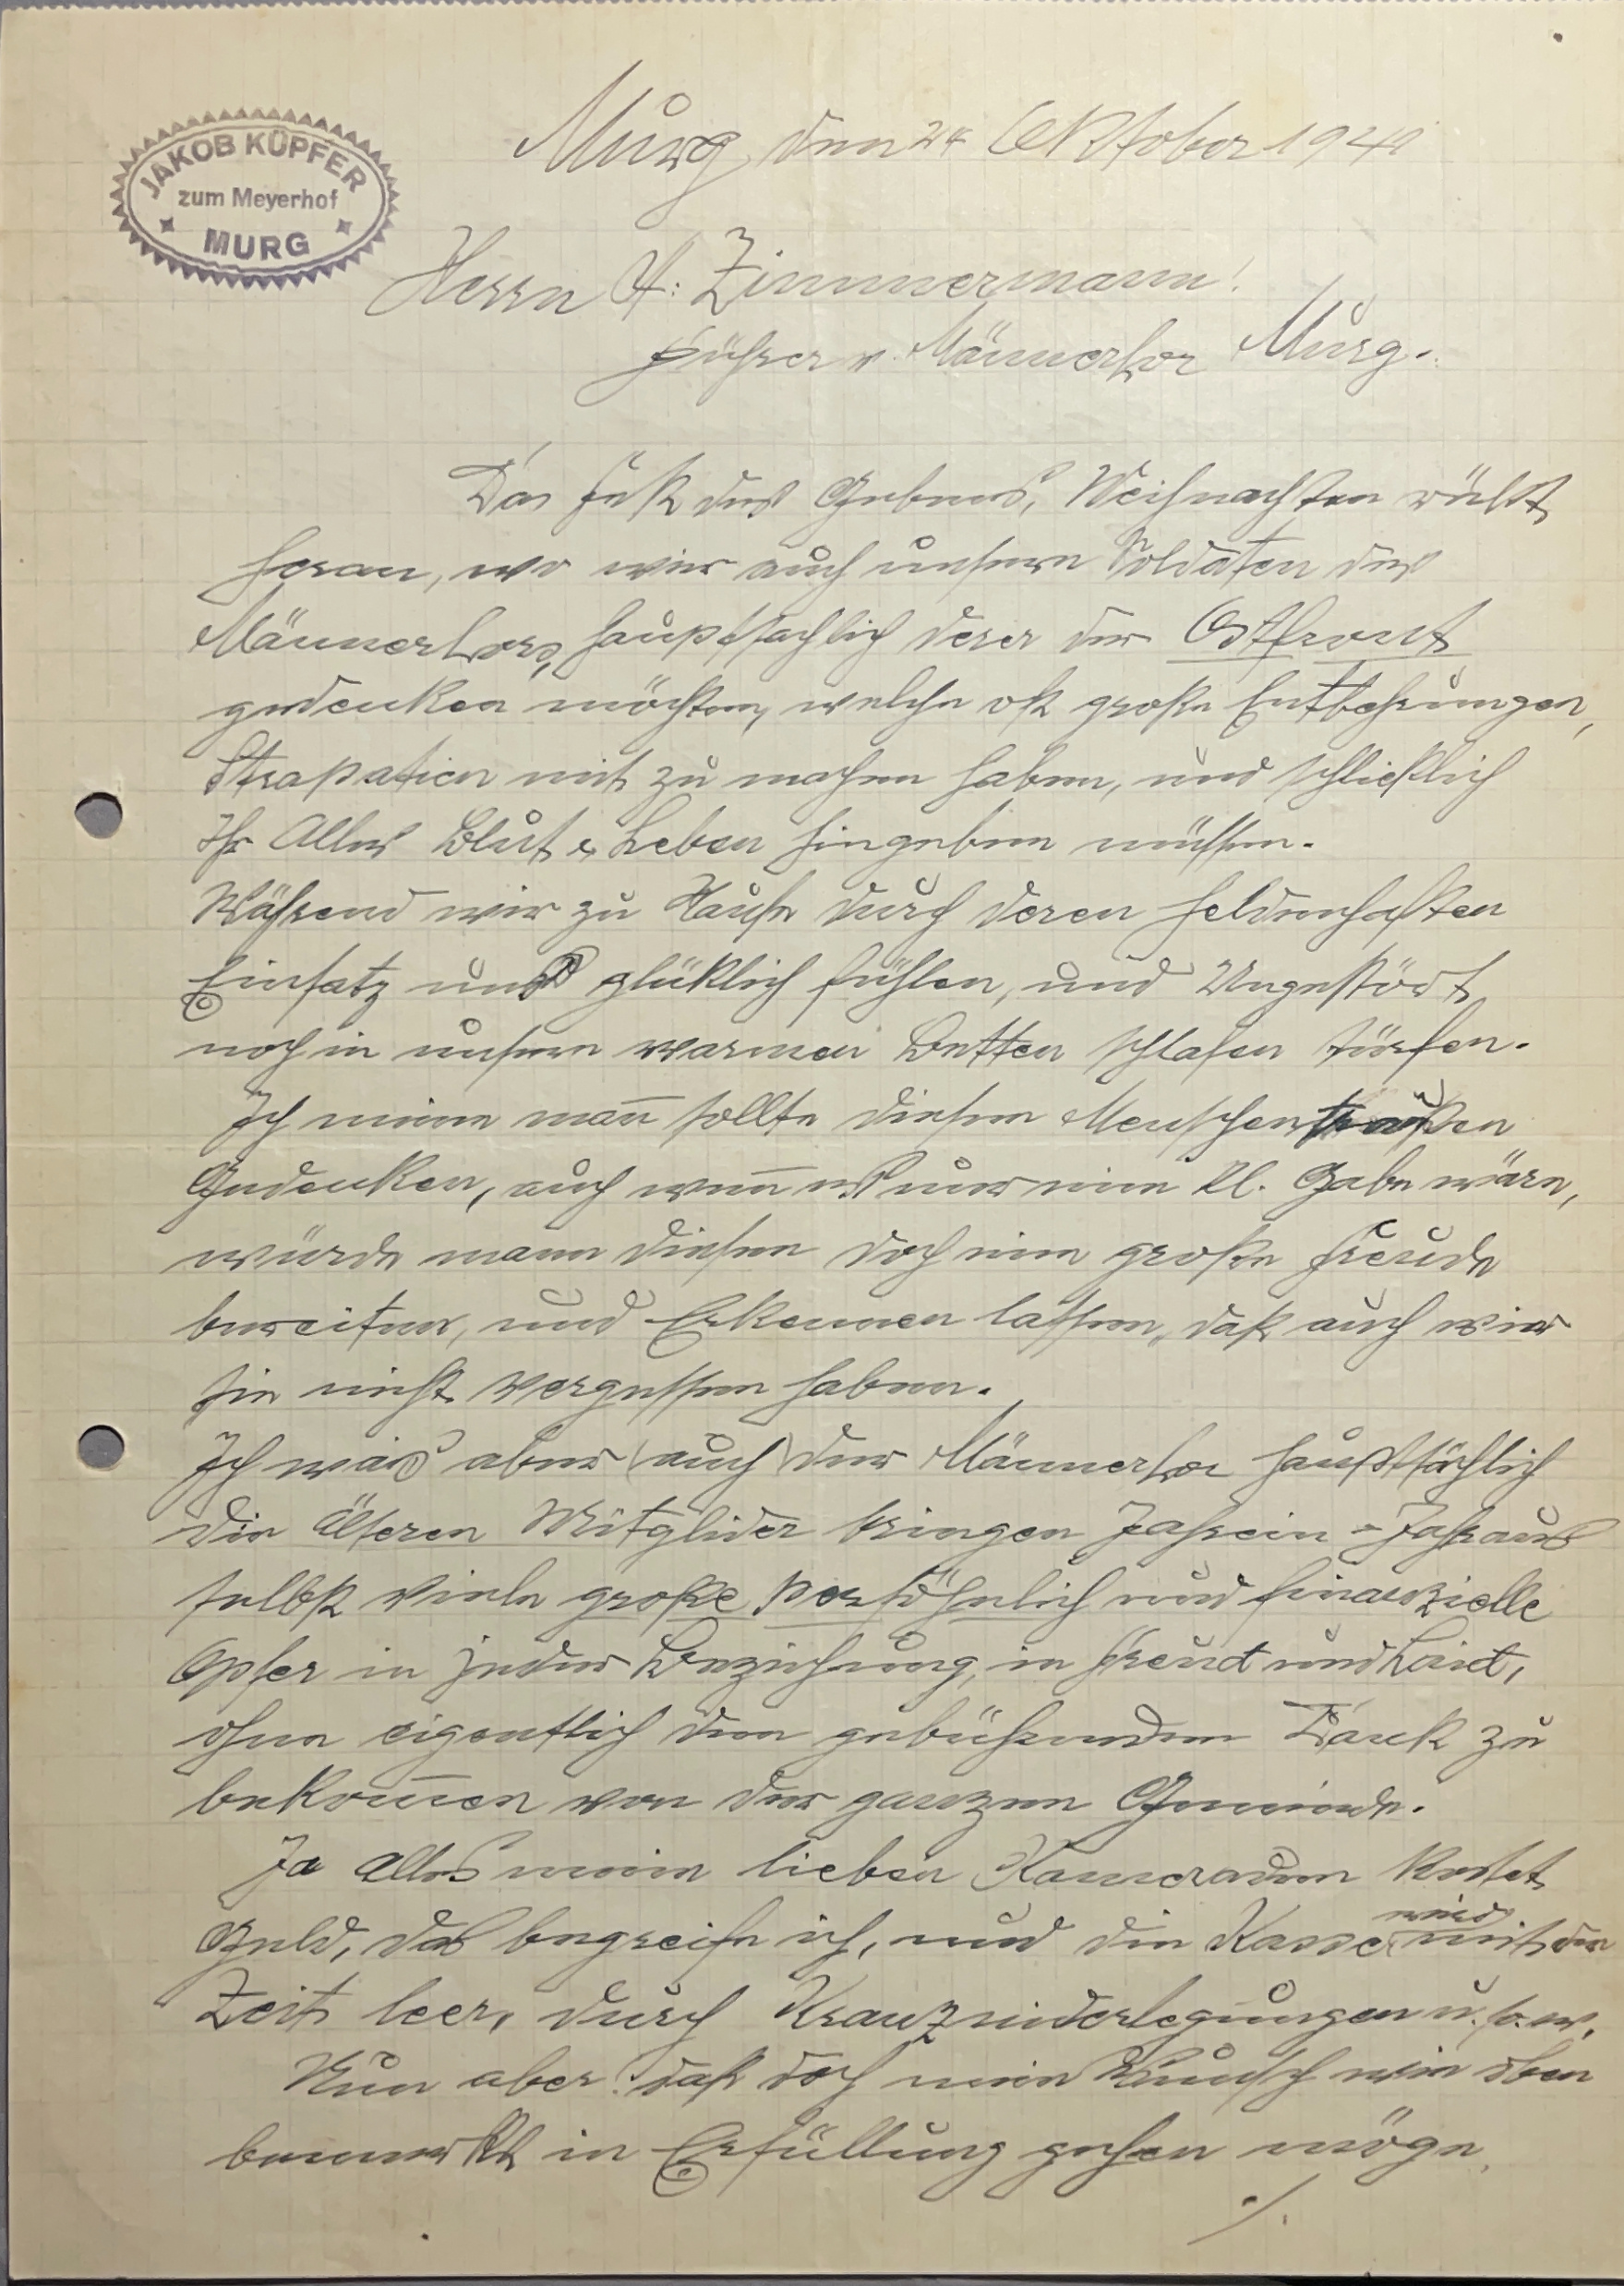 JAKOB KÜPFER
zum Meyerhof
MURG
Murg, den 24 Oktober 194
Herrn A: Zimmermann!
Führer v. Männerchor Murg.
Das Fest des Gebens, Weihnachten rückt
heran, wo wir auch unsern Soldaten des
Männerchors, hauptsächlich derer der Ostfront
gedenken möchten, welche oft große Entbehrungen,
Strapatien mit zu machen haben, und schließlich
Ihr Alles Blut & Leben hingeben müssen.
Während wir zu Hause durch deren heldenhaften
Einsatz uns glüklich fühlen, und Ungestört
noch in unsern warmen Betten schlafen törfen.
Ich meine mañ sollte diesen Menschen
Gedenken, auch weñ es nur eine kl. Gabe wäre,
würde mann diesen doch eine große Freude
bereiten, und Erkennen lassen, daß auch wir
sie nicht vergessen haben.
Ich weis aber (auch) der Männerchor hauptsächlich
die älteren Mitglider bringen Jahrein - Jahraus
selbst viele große persöhnlich und finanzielle
Opfer in jeder Beziehung, in Freud und Leid,
ohne eigentlich den gebührenden Dank zu
bekom̄en von der ganzen Gemeinde.
Ja alles meine lieben Kameraden kostet
Geld, das begreife ich, und die Kasse wird mit der
Zeit leer, durch Kranzniderlegungen u.s.w.
Nun aber! daß doch mein Wunsch wie oben
bemerkt in Erfüllung gehen möge,
./.